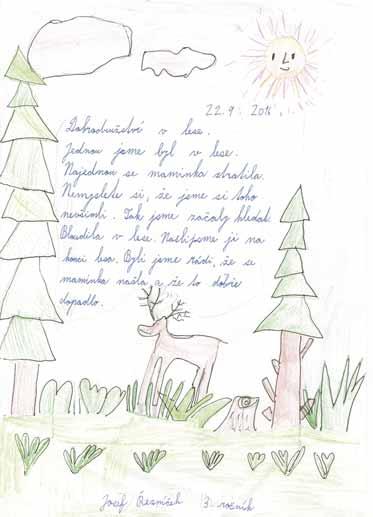 22.9. 201
Dobrodružství v lese.
Jednou jsme byl v lese.
Najednou se maminka stratila.
Nemyslete si, že jsme si toho
nevšimli. Tak jsme začaly hledat.
Bloudila v lese. Našlijsme ji na
konci lesa. Byli jsme rádi, že se
maminka našla a že to dobře
dopadlo.
Josef 3. ročník